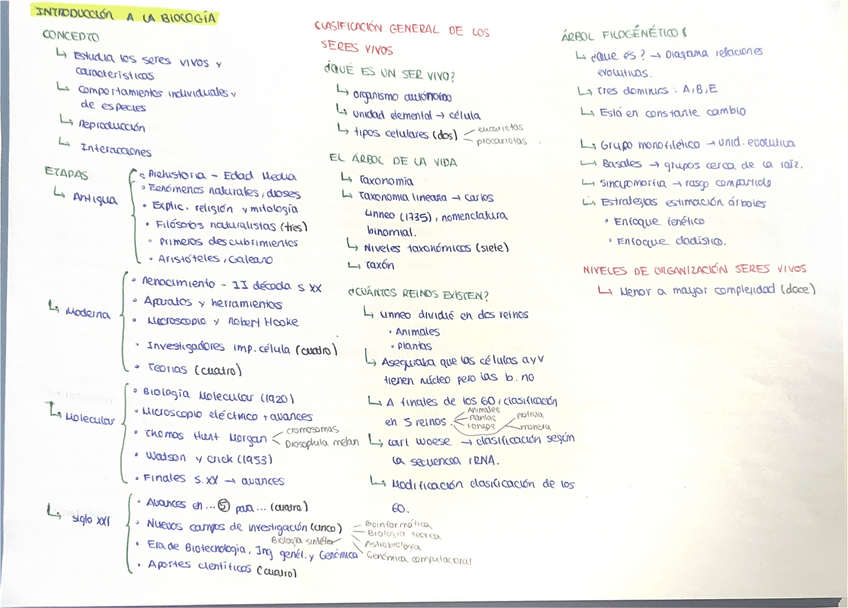 INTRODUCCIÓN A LA BIOLOGÍA
CONCEPTO
↳ Estudia los seres vivos y
características
↳ Comportamientos individuales y
de especies
↳ Reproducción
↳ Interacciones
ETAPAS
↳ Antigua
• Prehistoria - Edad Media
• Fenómenos naturales, dioses
• Explic. religión y mitología
• Filósofos naturalistas (tres)
• Primeros descubrimientos
• Aristóteles, Galeano
↳ Moderna
• Renacimiento - II década s XX
• Aparatos y herramientas
• Microscopio y Robert Hooke
• Investigadores imp. célula (cuatro)
• Teorías (cuatro)
↳ Molecular
• Biología Molecular (1920)
• Microscopio eléctrico + avances
• Thomas Hunt Morgan
cromosomas
Drosophila melan
• Watson y Crick (1953)
• Finales s. XX → avances
↳ Siglo XXI
• Avances en ... 5 para ... (cuatro)
• Nuevos campos de investigación (cinco)
Bioinformática
Biología teórica
Biología sintética
Astrobiología
Genómica computacional
• Era de Biotecnología, Ing. genét. y Genómica
• Aportes científicos (cuatro)
CLASIFICACIÓN GENERAL DE LOS
SERES VIVOS
¿QUÉ ES UN SER VIVO?
↳ organismo autónomo
↳ unidad elemental → célula
↳ tipos celulares (dos)
eucariotas
procariotas
EL ÁRBOL DE LA VIDA
↳ Taxonomía
↳ Taxonomía linneana → Carlos
Linneo (1735), nomenclatura
binomial.
↳ Niveles taxonómicos (siete)
↳ Taxón
¿CUÁNTOS REINOS EXISTEN?
↳ Linneo dividió en dos reinos
• Animales
• Plantas
↳ Aseguraba que las células a y v
tienen núcleo pero las b. no
↳ A finales de los 60, clasificación
en 5 reinos.
Animales
Plantas
Fongos
protista
monera
↳ Carl Woese → clasificación según
la secuencia rRNA.
↳ Modificación clasificación de los
60.
ÁRBOL FILOGÉNÉTICO:
↳ ¿Qué es? → Diagrama relaciones
evolutivas.
↳ Tres dominios: A, B, E
↳ Está en constante cambio
↳ Grupo monofilético → unid. evolutiva
↳ Basales → grupos cerca de la raíz.
↳ Sinapomorfía → rasgo compartido
↳ Estrategias estimación árboles
• Enfoque fenético
• Enfoque cladístico.
NIVELES DE ORGANIZACIÓN SERES VIVOS
↳ Menor a mayor complejidad (doce)